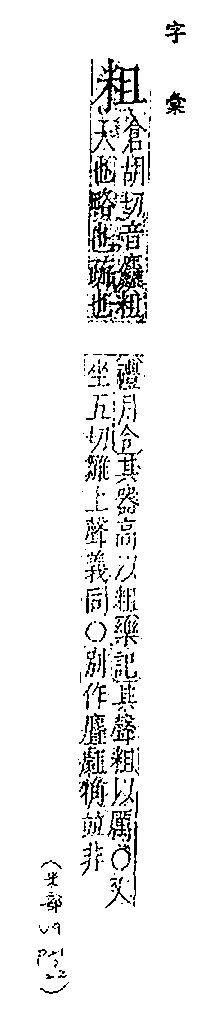 字彙
粗
倉胡切音麤粗
大也略也疏也
禮月令其器高以粗樂記其聲粗以厲○又
坐五切雛上聲義同○別作麤麄觕竝非
(米部